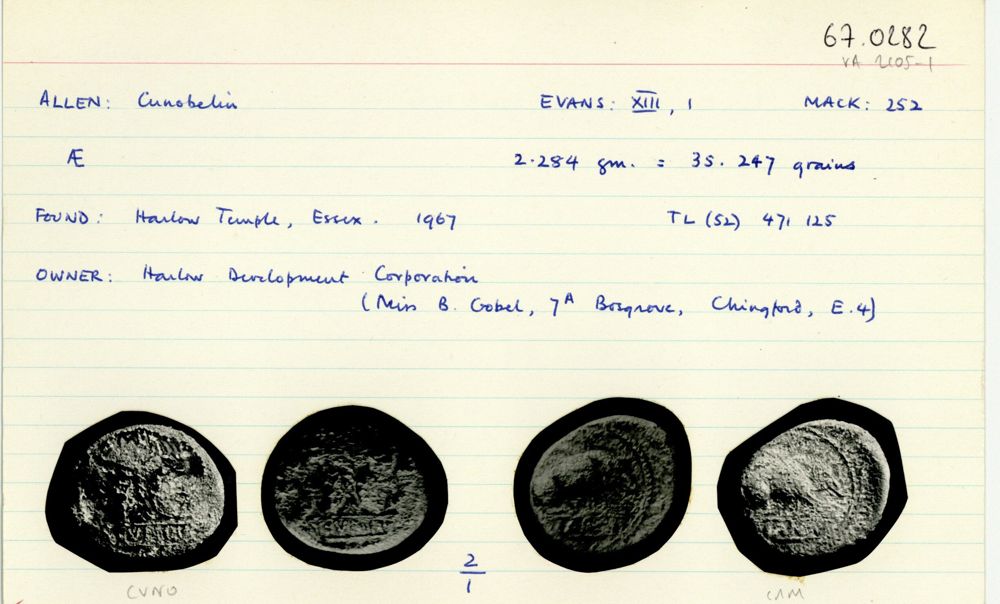 67.0282
VA 2105-1
ALLEN: Cunobelin EVANS: XIII, 1 MACK: 252
Æ 2.284 gm. = 35.247 grains
FOUND: Harlow Temple, Essex. 1967 TL (52) 471 125
OWNER: Harlow Development Corporation
(Miss B. Gobel, 7A Bosgrove, Chingford, E.4)
2
1
CVNO CAM